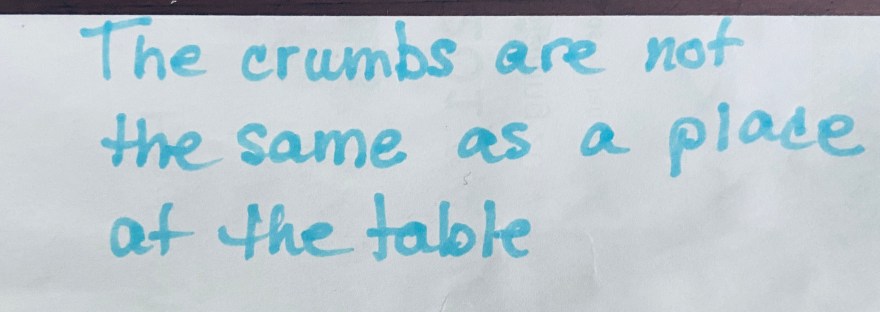 The crumbs are not
the same as a place
at the table